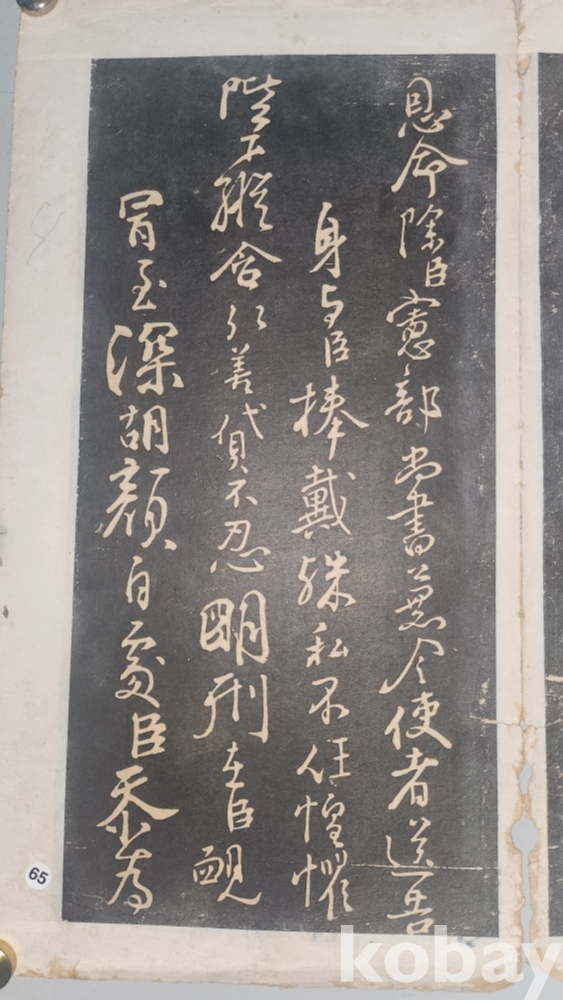 恩命除臣憲部尚書兼令使者送告
身与臣捧戴殊私不任惶懼
陛下縱含弘善貸不忍明刑在臣觀
冒至深胡顏自處臣忝為
65
kobay